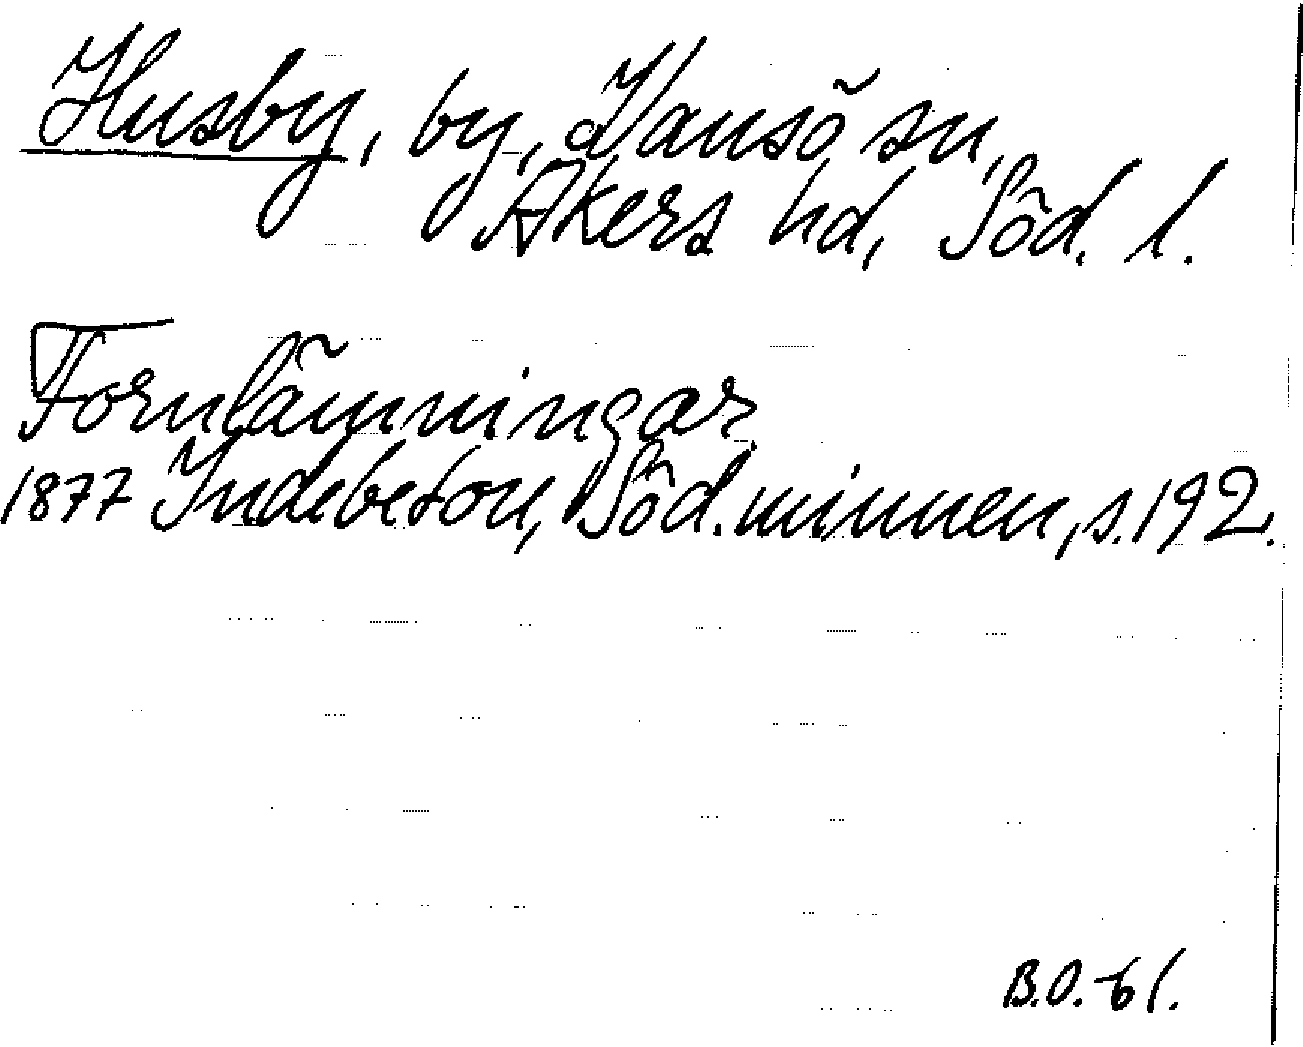 Husby, by, Vansö sn,
Åkers hd, Söd. l.
Fornlämningar
1877 Indebetou, Söd. minnen, s. 192.
B.O. -61.